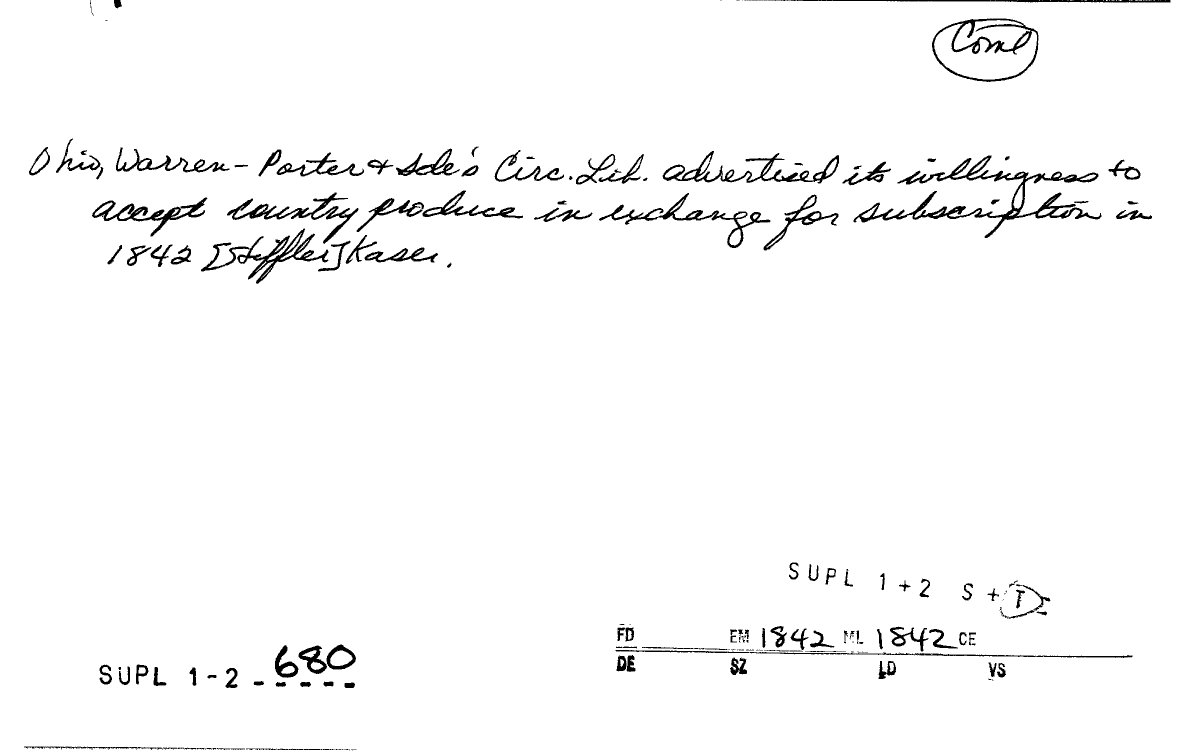 Coml
Ohio, Warren - Porter & Ide's Circ. Lib. advertised its willingness to
accept country produce in exchange for subscription in
1842 [Stiffler] Kaser.
SUPL 1+2 S + I
FD EM 1842 ML 1842 CE
DE SZ LD VS
SUPL 1-2 - 680